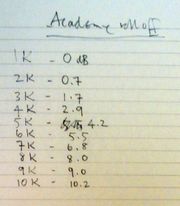 Academy roll off
1K - 0 dB
2K - 0.7
3K - 1.7
4K - 2.9
5K - 4.2
6K - 5.5
7K - 6.8
8K - 8.0
9K - 9.0
10K - 10.2